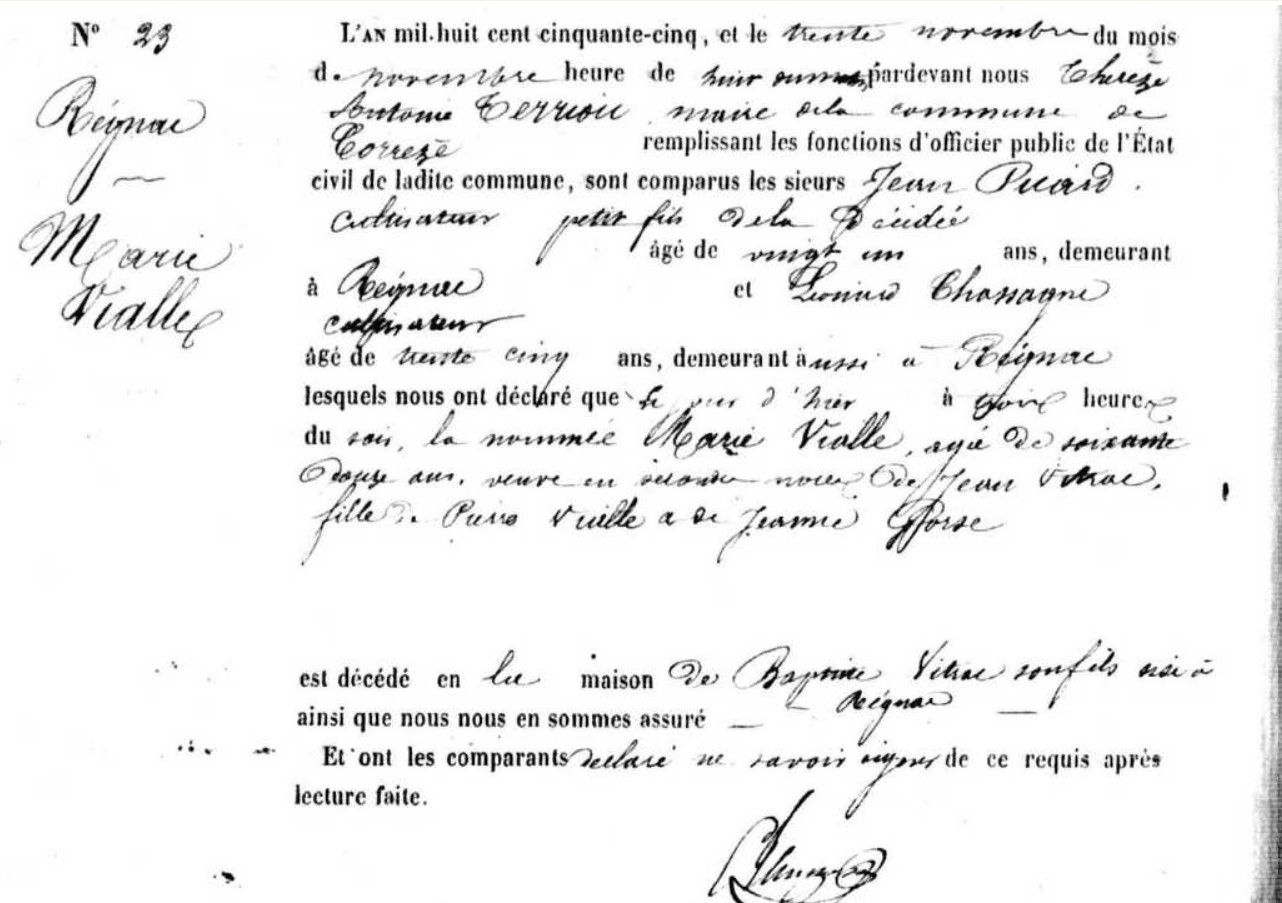 N° 23
Réignac
Marie
Vialle
L'AN mil-huit cent cinquante-cinq, et le trente novembre du mois
de novembre heure de pardevant nous Therèze
Antoine Terriou maire dela commune de
Corrèze remplissant les fonctions d'officier public de l'État
civil de ladite commune, sont comparus les sieurs Jean Picard
cultivateur petit fils dela Décidée
âgé de vingt un ans, demeurant
à Réignac et Leonard Chassagne
cultivateur
âgé de trente cinq ans, demeurant aussi à Réignac
lesquels nous ont déclaré que le jour d'hier à heures
du soir, la nommée Marie Vialle, agée de soixante
douze ans, veuve en seconde noces de Jean Vitrac,
fille de Pierre Vialle & de Jeanne Gorse
est décédé en la maison de Baptiste Vitrac son fils sise à
Réignac
ainsi que nous nous en sommes assuré —
Et ont les comparants declaré ne savoir signer de ce requis après
lecture faite.